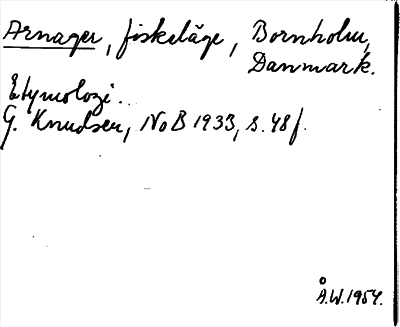 Arnager, fiskeläge, Bornholm,
Danmark.
Etymologi.
G. Knudsen, NoB 1933, s. 48 f.
Å.W. 1954.